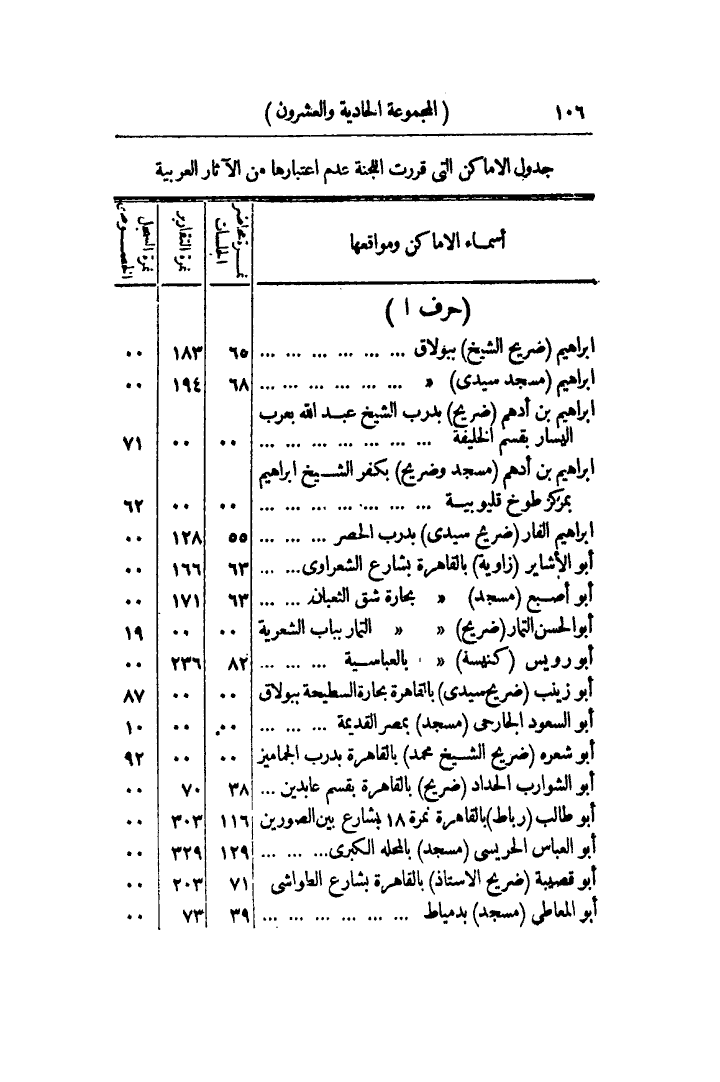 ١٠٦ ( المجموعة الحادية والعشرون )
جدول الاماكن التى قررت اللجنة عدم اعتبارها من الآثار العربية
أسماء الاماكن ومواقعها نمرة محاضر الجلسات نمرة التقارير نمرة السجل الخصوصى
( حرف ا )
ابراهيم (ضريح الشيخ) ببولاق ... ... ... ... ... ... ٦٥ ١٨٣ ٠٠
ابراهيم (مسجد سيدى) » ... ... ... ... ... ... ٦٨ ١٩٤ ٠٠
ابراهيم بن أدهم (ضريح) بدرب الشيخ عبد الله بعرب
اليسار بقسم الخليفة ... ... ... ... ... ... ... ٠٠ ٠٠ ٧١
ابراهيم بن أدهم (مسجد وضريح) بكفر الشيخ ابراهيم
بمركز طوخ قليوبية ... ... ... ... ... ... ... ٠٠ ٠٠ ٦٢
ابراهيم الفار (ضريح سيدى) بدرب الحصر ... ... ... ٥٥ ١٢٨ ٠٠
أبو الأشاير (زاوية) بالقاهرة بشارع الشعراوى... ... ٦٣ ١٦٦ ٠٠
أبو أصبع (مسجد) » بحارة شق الثعبان ... ... ٦٣ ١٧١ ٠٠
أبوالحسن التمار (ضريح) » » التمار بباب الشعرية ٠٠ ٠٠ ١٩
أبو رويس (كنيسة) » بالعباسية ... ... ... ٨٢ ٢٣٦ ٠٠
أبو زينب (ضريح سيدى) بالقاهرة بحارة السطيحة ببولاق ٠٠ ٠٠ ٨٧
أبو السعود الجارحى (مسجد) بمصر القديمة ... ... ... ٠٠ ٠٠ ١٠
أبو شعره (ضريح الشيخ محمد) بالقاهرة بدرب الجماميز ٠٠ ٠٠ ٩٢
أبو الشوارب الحداد (ضريح) بالقاهرة بقسم عابدين ... ٣٨ ٧٠ ٠٠
أبو طالب (رباط) بالقاهرة نمرة ١٨ بشارع بين الصورين ١١٦ ٣٠٣ ٠٠
أبو العباس الحريسى (مسجد) بالمحله الكبرى... ... ... ١٢٩ ٣٢٩ ٠٠
أبو قصيبة (ضريح الاستاذ) بالقاهرة بشارع الطواشى ٧١ ٢٠٣ ٠٠
أبو المعاطى (مسجد) بدمياط ... ... ... ... ... ... ٣٩ ٧٣ ٠٠